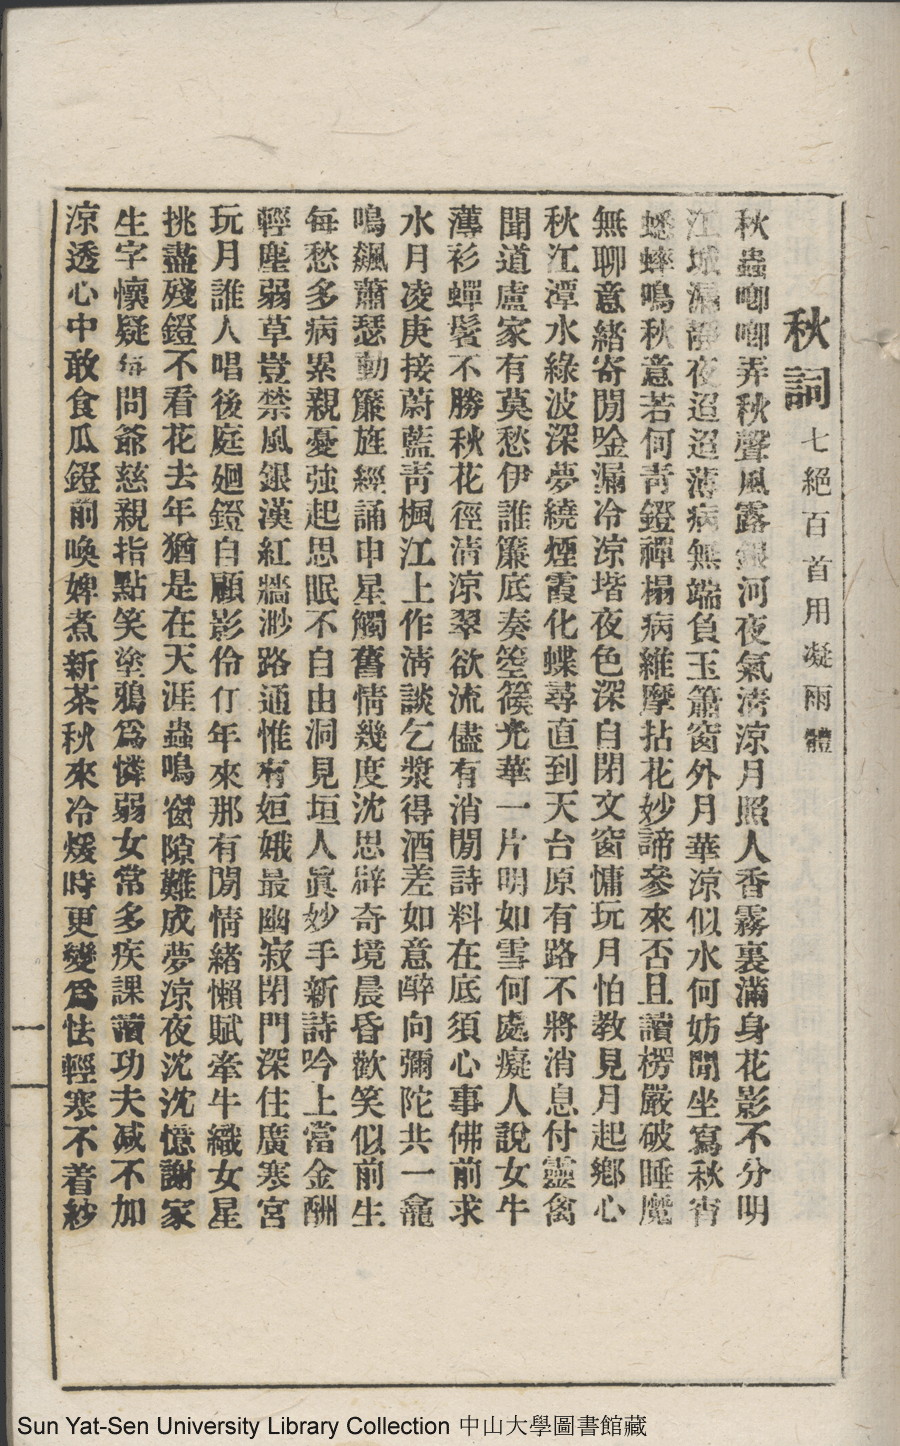 秋詞 七絕百首用凝雨體
秋蟲唧唧弄秋聲風露銀河夜氣淸涼月照人香霧裏滿身花影不分明
江城漏靜夜迢迢薄病無端負玉簫窗外月華涼似水何妨閒坐寫秋宵
蟋蟀鳴秋意若何靑鐙禪榻病維摩拈花妙諦參來否且讀楞嚴破睡魔
無聊意緒寄閒唫漏冷凉堦夜色深自閉文窗慵玩月怕敎見月起鄕心
秋江潭水綠波深夢繞煙霞化蝶尋直到天台原有路不將消息付靈禽
聞道盧家有莫愁伊誰簾底奏箜篌光華一片明如雪何處癡人說女牛
薄衫蟬鬢不勝秋花徑淸涼翠欲流儘有消閒詩料在底須心事佛前求
水月凌庚接蔚藍靑楓江上作淸談乞漿得酒差如意醉向彌陀共一龕
鳴飆蕭瑟動簾旌經誦申星觸舊情幾度沈思辟奇境晨昏歡笑似前生
每愁多病累親憂強起思眠不自由洞見垣人眞妙手新詩吟上當金酬
輕塵弱草豈禁風銀漢紅牆渺路通惟有姮娥最幽寂閉門深住廣寒宮
玩月誰人唱後庭廻鐙自顧影伶仃年來那有閒情緒懶賦牽牛織女星
挑盡殘鐙不看花去年猶是在天涯蟲鳴窗隙難成夢涼夜沈沈憶謝家
生字懷疑每問爺慈親指點笑塗鴉爲憐弱女常多疾課讀功夫减不加
涼透心中敢食瓜鐙前喚婢煮新茶秋來冷煖時更變爲怯輕寒不着紗
Sun Yat-Sen University Library Collection 中山大學圖書館藏